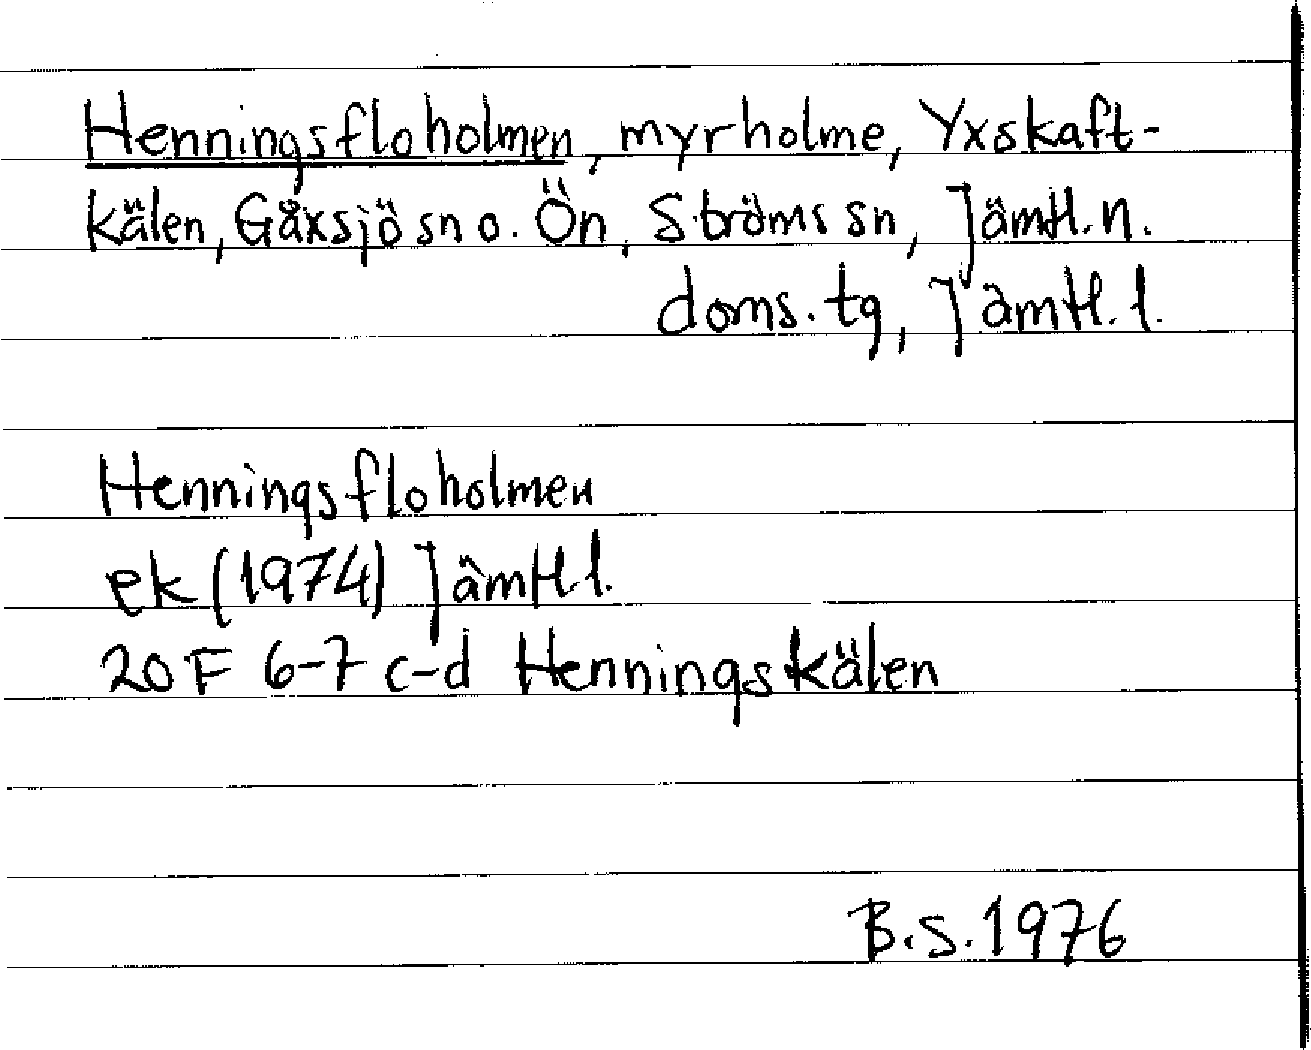 Henningsfloholmen, myrholme, Yxskaft-
kälen, Gåxsjö sn o. Ön, Ströms sn, Jämtl. n.
doms. tg, Jämtl. l.
Henningsfloholmen
ek (1974) Jämtl l.
20 F 6-7 c-d Henningskälen
B.S. 1976